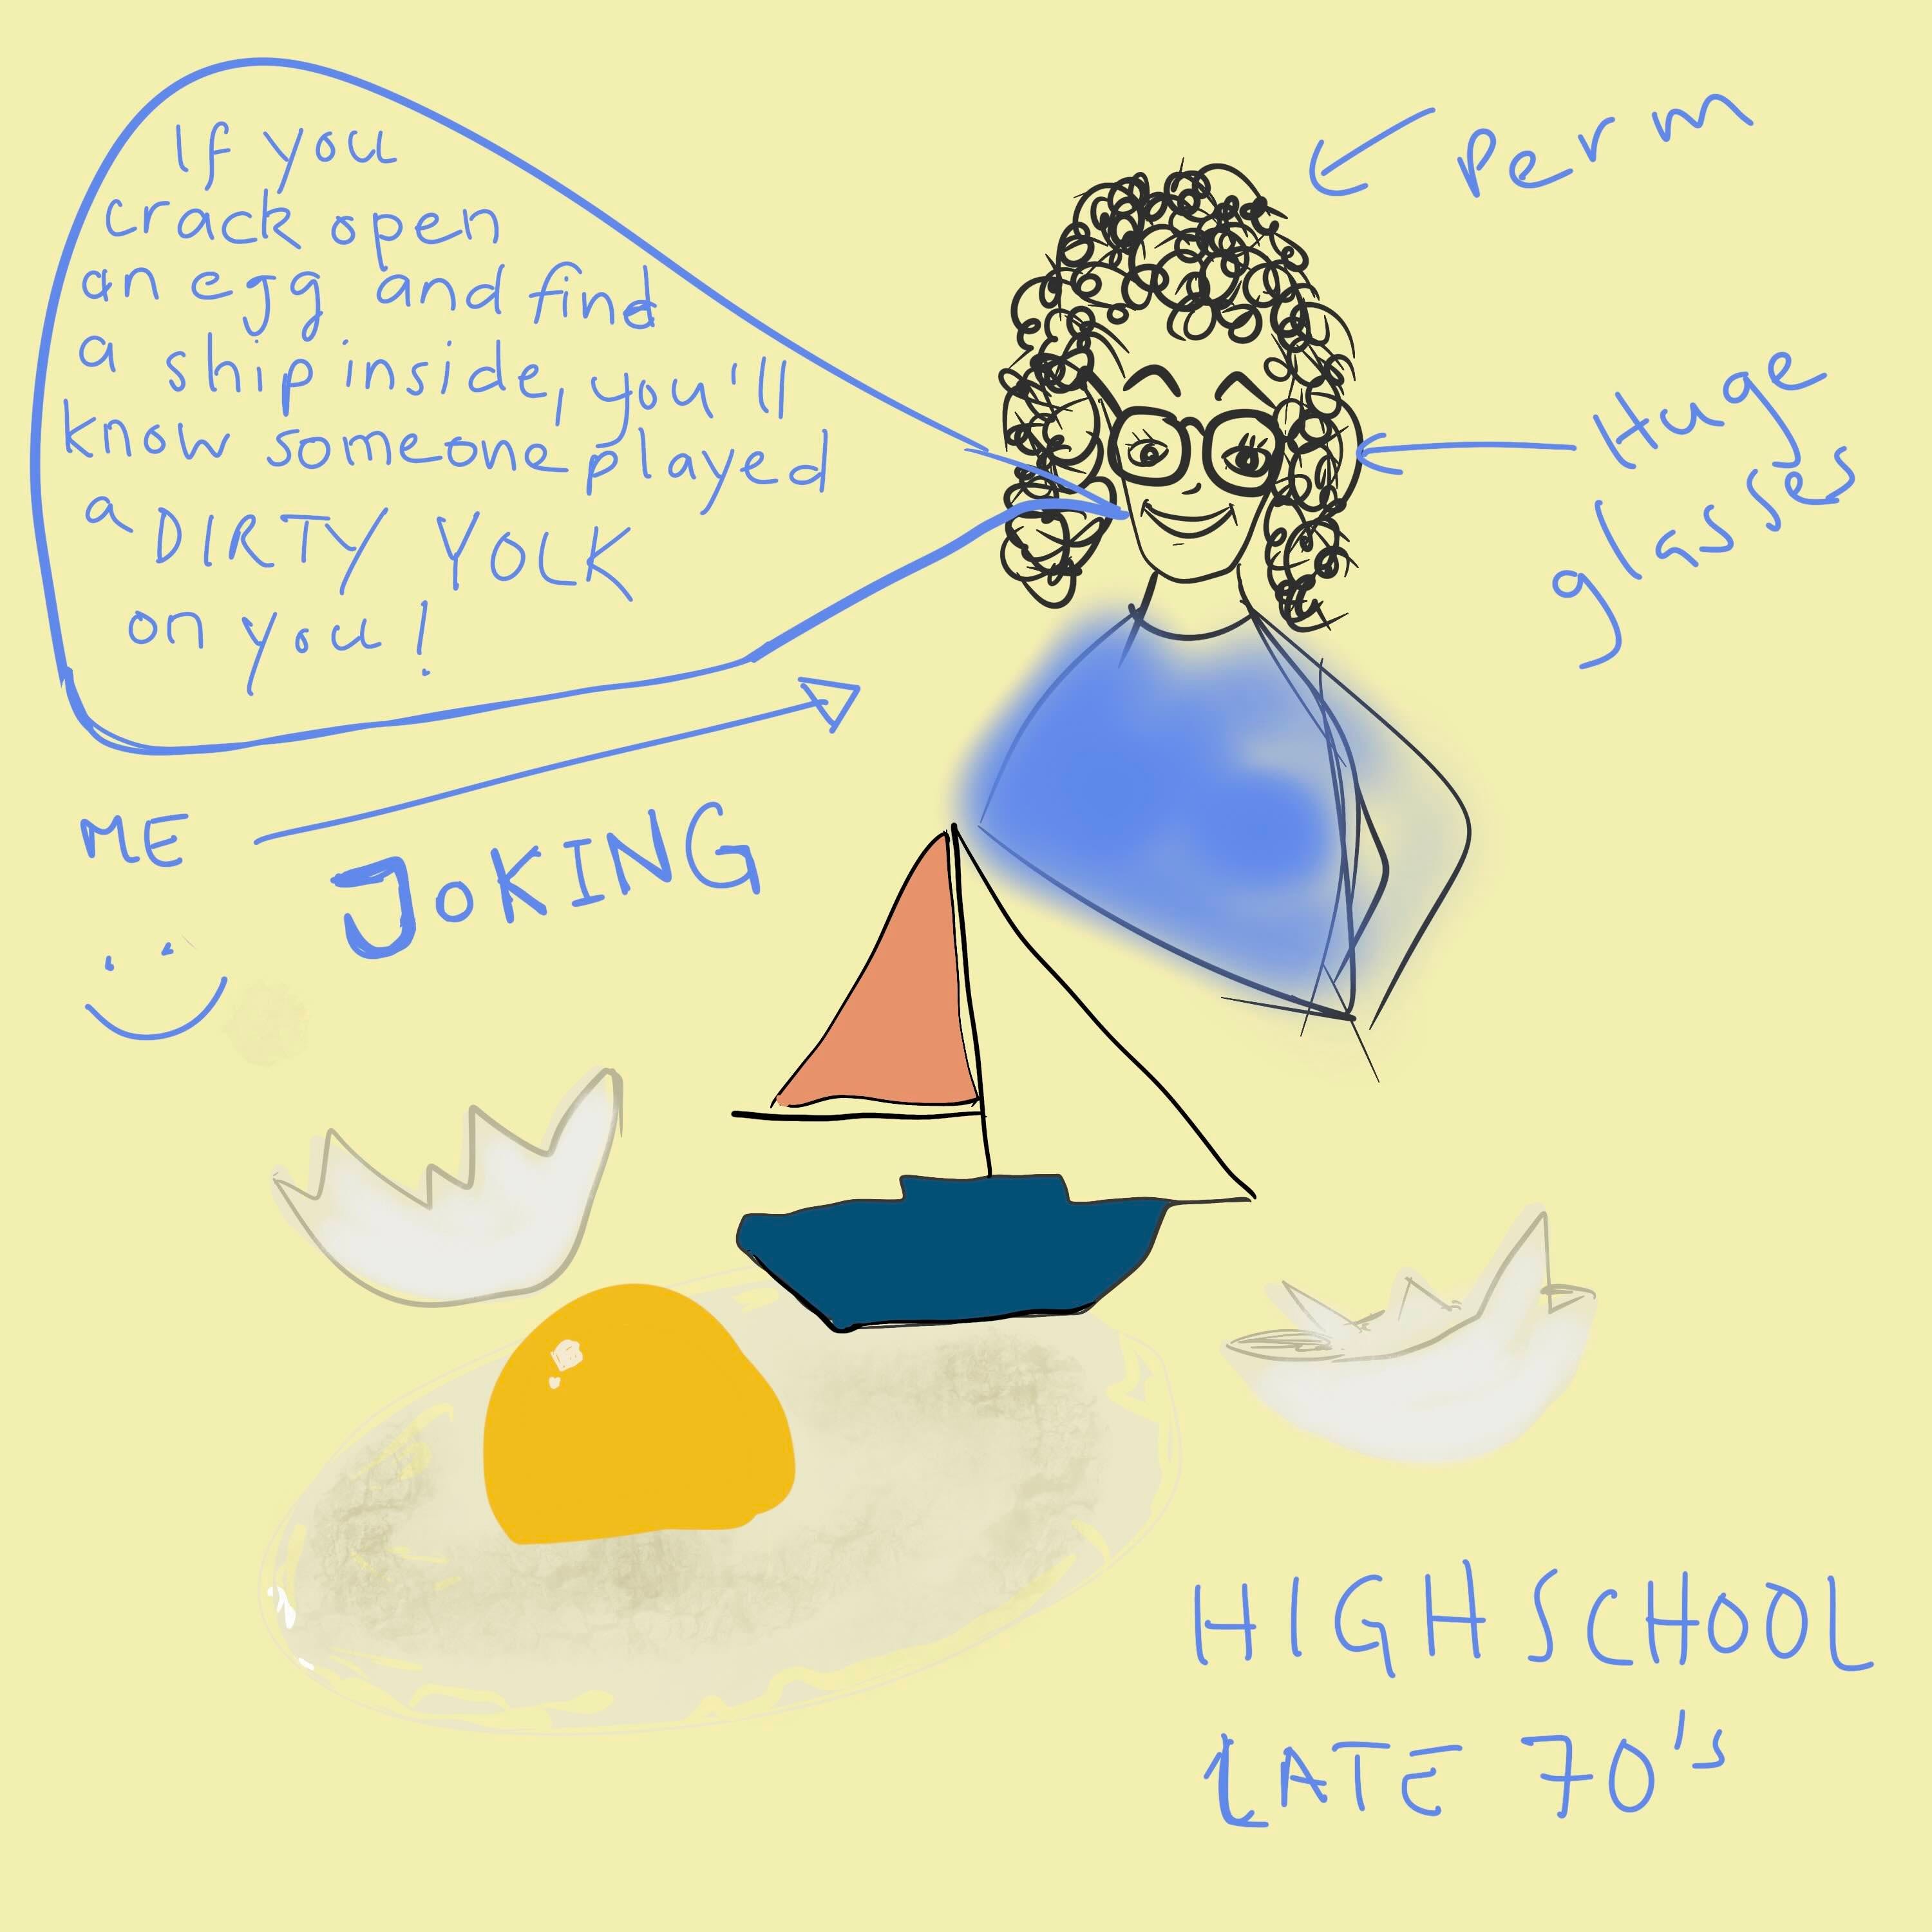 If you
crack open
an egg and find
a ship inside, you'll
know someone played
a DIRTY YOLK
on you!
Perm
Huge
glasses
ME
JoKING
HIGH SCHOOL
LATE 70's